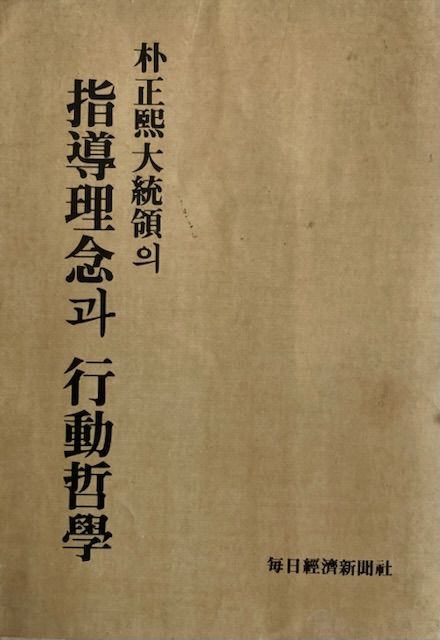 朴正熙大統領의
指導理念과 行動哲學
每日經濟新聞社